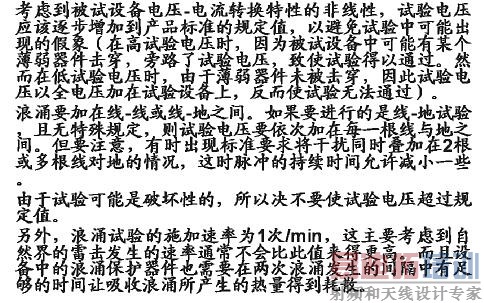 考虑到被试设备电压-电流转换特性的非线性，试验电压
应该逐步增加到产品标准的规定值，以避免试验中可能出
现的假象（在高试验电压时，因为被试设备中可能有某个
薄弱器件击穿，旁路了试验电压，致使试验得以通过。然
而在低试验电压时，由于薄弱器件未被击穿，因此试验电
压以全电压加在试验设备上，反而使试验无法通过）。
浪涌要加在线-线或线-地之间。如果要进行的是线-地试验
，且无特殊规定，则试验电压要依次加在每一根线与地之
间。但要注意，有时出现标准要求将干扰同时叠加在2根
或多根线对地的情况，这时脉冲的持续时间允许减小一些
。
由于试验可能是破坏性的，所以决不要使试验电压超过规
定值。
另外，浪涌试验的施加速率为1次/min，这主要考虑到自
然界的雷击发生的速率通常不会比此值来得更高，而且设
备中的浪涌保护器件也需要在两次浪涌发生的间隔中有足
够的时间让吸收浪涌所产生的热量得到耗散。
射频和天线设计专家